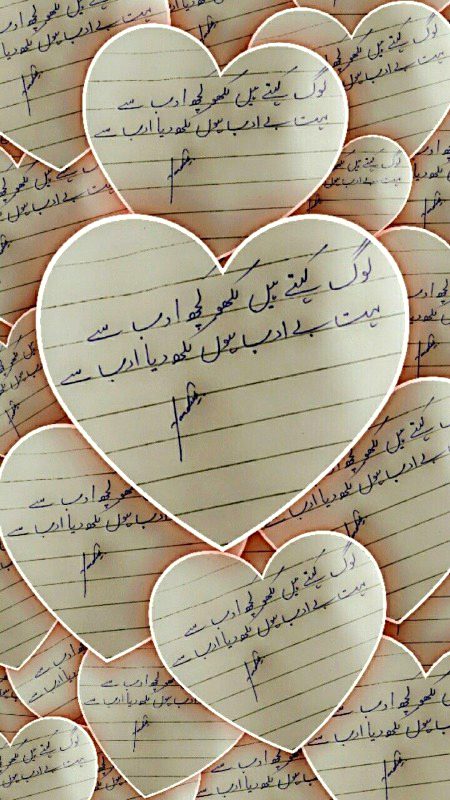 لوگ کہتے ہیں لکھو کچھ ادب سے
بہت بے ادب ہوں لکھ دیا ادب سے